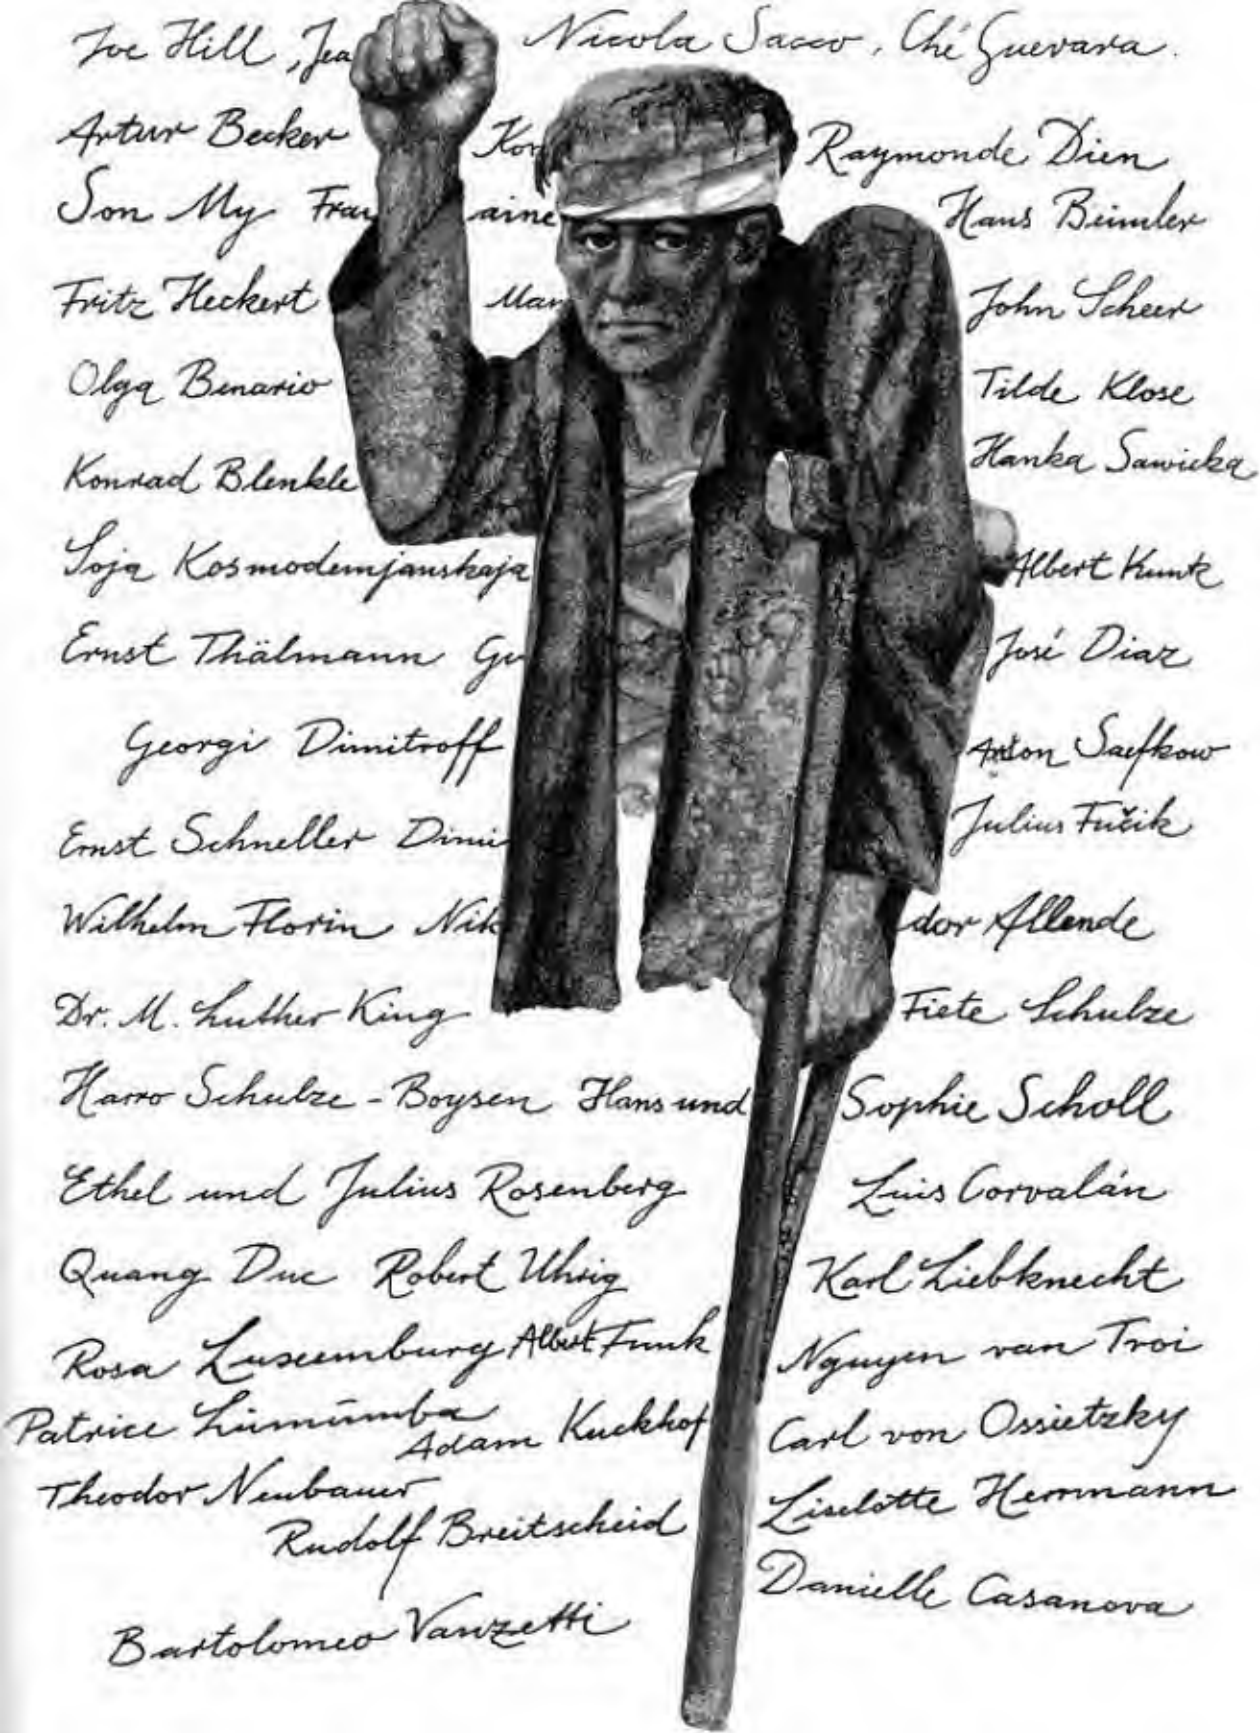 Joe Hill, Jea Nicola Sacco, Ché Guevara.
Artur Becker Kon Raymonde Dien
Son My Frau aine Hans Beimler
Fritz Heckert Man John Scheer
Olga Benario Tilde Klose
Konrad Blenkle Hanka Sawicka
Soja Kosmodemjanskaja Albert Kuntz
Ernst Thälmann Gu José Diaz
Georgi Dimitroff Anton Saefkow
Ernst Schneller Dimi Julius Fučik
Wilhelm Florin Nik dor Allende
Dr. M. Luther King Fiete Schulze
Harro Schulze-Boysen Hans und Sophie Scholl
Ethel und Julius Rosenberg Luis Corvalán
Quang Duc Robert Uhrig Karl Liebknecht
Rosa Luxemburg Albert Funk Nguyen van Troi
Patrice Lumumba Adam Kuckhof Carl von Ossietzky
Theodor Neubauer Liselotte Herrmann
Rudolf Breitscheid
Danielle Casanova
Bartolomeo Vanzetti